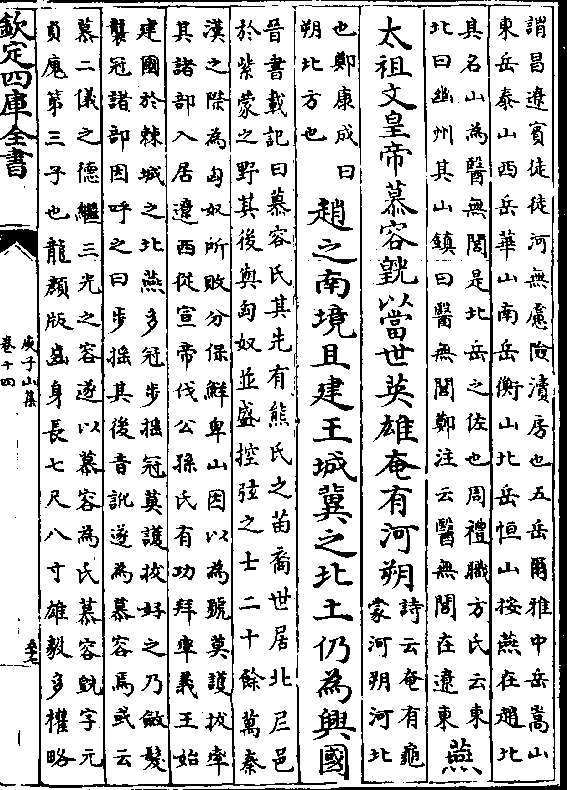 誚昌遼賔徒徒河無慮險瀆房也五岳爾雅中岳嵩山
東岳泰山西岳華山南岳衡山北岳恒山按燕在趙北
其名山為醫無閭是北岳之佐也周禮職方氏云東
北曰幽州其山鎮曰醫無閭鄭注云醫無閭在遼東
燕
太祖文皇帝慕容皝以當世英雄奄有河朔
詩云奄有龜
蒙河朔河北
也鄭康成曰
朔北方也
趙之南境且建王城冀之北土仍為興國
晉書載記曰慕容氏其先有熊氏之苗裔世居北尼邑
於紫蒙之野其後與匈奴並盛控弦之士二十餘萬秦
漢之際為匈奴所敗分保鮮卑山因以為號莫護拔率
其諸部入居遼西從宣帝伐公孫氏有功拜率義王始
建國於棘城之北燕多冠步揺冠莫護拔好之乃斂髮
襲冠諸部因呼之曰步揺其後音訛遂為慕容焉或云
慕二儀之德繼三光之容遂以慕容為氏慕容皝字元
貞廆第三子也龍顔版齒身長七尺八寸雄毅多權略
欽定四庫全書
庾子山集
卷十四